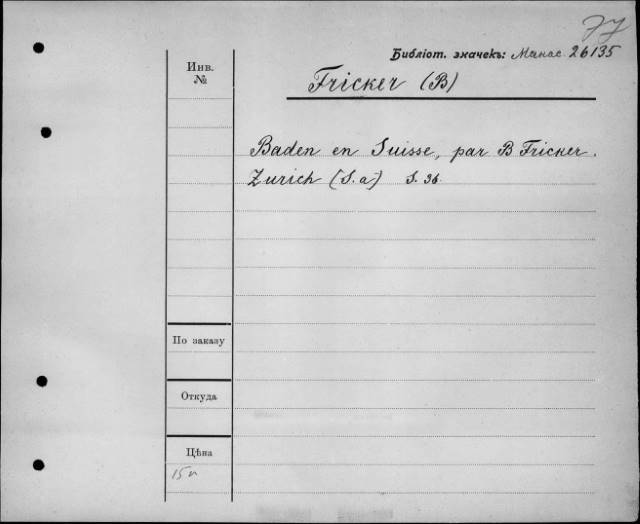 77
Библіот. значекъ: Манас. 26135
Инв.
№
Fricker (B)
Baden en Suisse, par B Fricker.
Zurich (S. a) S. 36
По заказу
Откуда
Цѣна
15